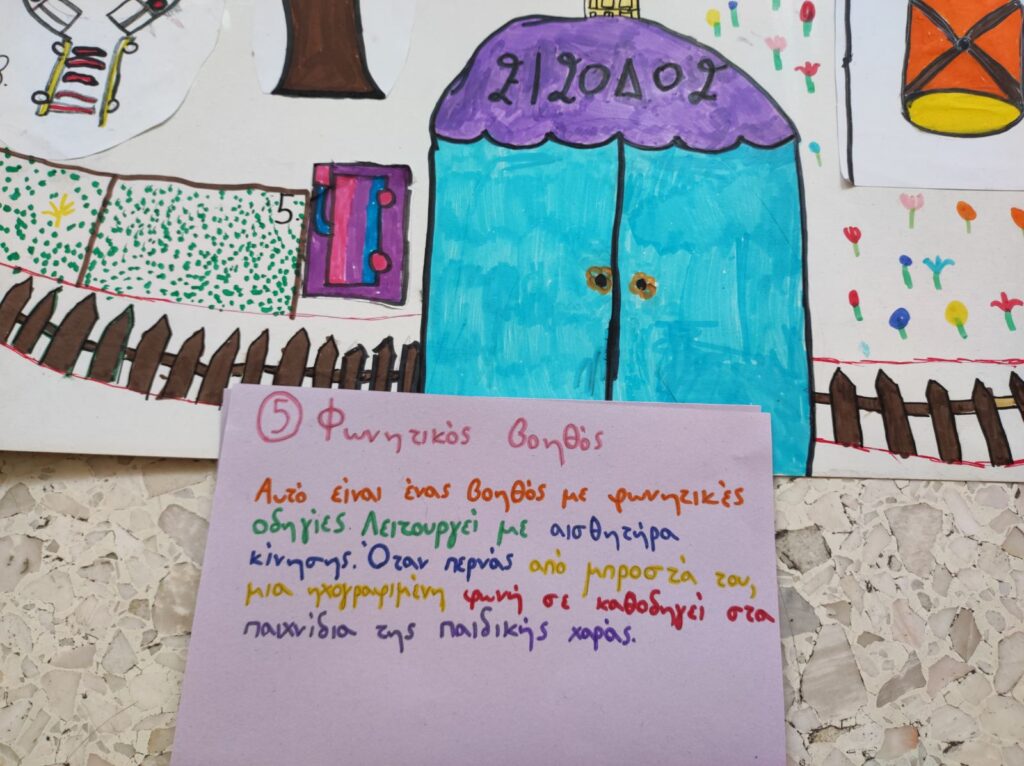 ΕΙΣΟΔΟΣ
5.
5 Φωνητικός βοηθός
Αυτό είναι ένας βοηθός με φωνητικές
οδηγίες. Λειτουργεί με αισθητήρα
κίνησης. Όταν περνάς από μπροστά του,
μια ηχογραφιμένη φωνή σε καθοδηγεί στα
παιχνίδια της παιδικής χαράς.